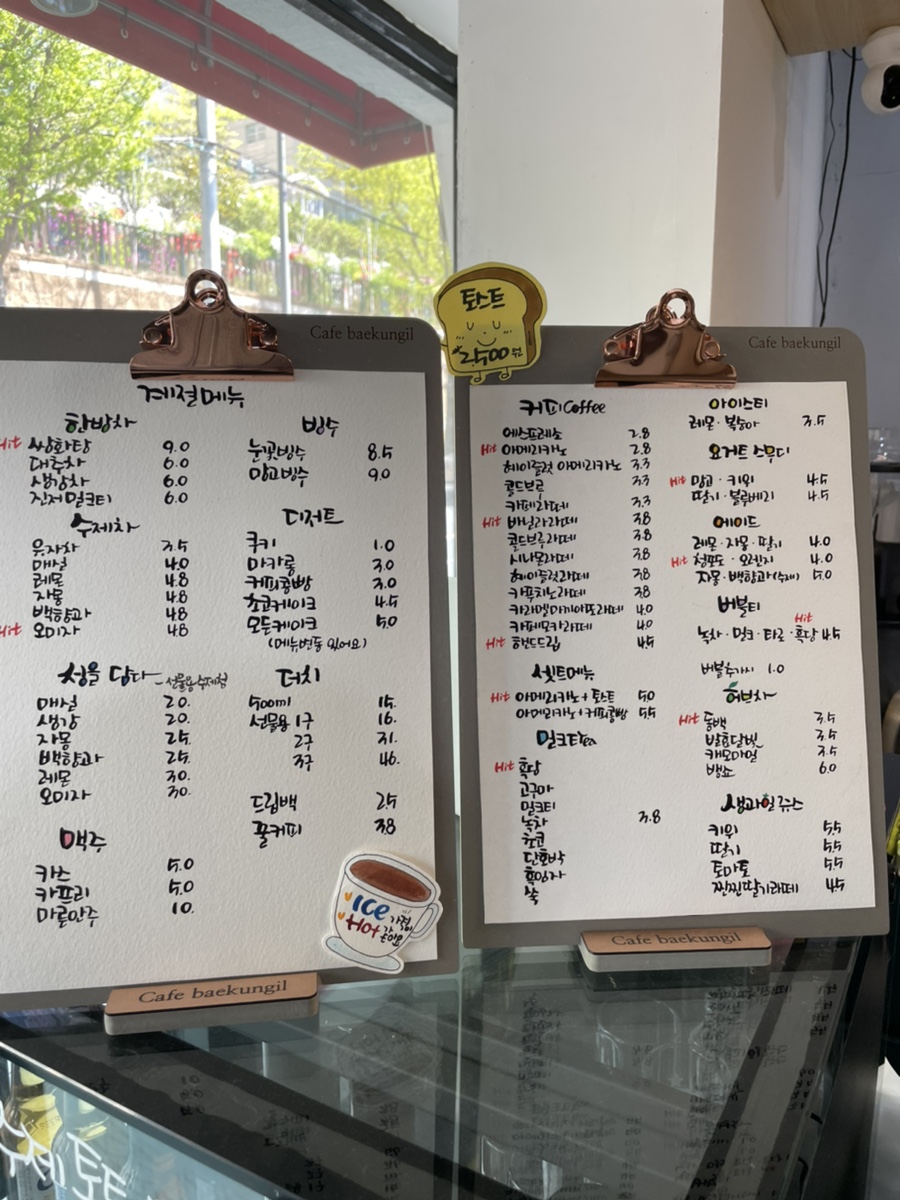 Cafe baekungil
계절메뉴
한방차
Hit 쌍화탕 9.0
대추차 6.0
생강차 6.0
진저밀크티 6.0
수제차
유자차 3.5
매실 4.0
레몬 4.8
자몽 4.8
백향과 4.8
Hit 오미자 4.8
청을 담다 - 선물용 수제청
매실 20.
생강 20.
자몽 25.
백향과 25.
레몬 30.
오미자 30.
맥주
카스 5.0
카프리 5.0
마른안주 10.
빙수
눈꽃빙수 8.5
망고빙수 9.0
디저트
쿠키 1.0
마카롱 3.0
커피콩빵 3.0
초코케이크 4.5
모든케이크 5.0
(메뉴변동 있어요)
더치
500ml 15.
선물용 1구 16.
2구 31.
3구 46.
드립백 2.5
풀커피 3.8
ICE
Hot 가격이
같아요
Cafe baekungil
토스트
2,500원
Cafe baekungil
커피 Coffee
에스프레소 2.8
Hit 아메리카노 2.8
헤이즐럿 아메리카노 3.3
콜드브루 3.3
카페라떼 3.3
Hit 바닐라라떼 3.8
콜드브루라떼 3.8
시나몬라떼 3.8
헤이즐럿라떼 3.8
카푸치노라떼 3.8
카라멜마끼아또라떼 4.0
카페모카라떼 4.0
Hit 핸드드립 4.5
셋트메뉴
Hit 아메리카노+토스트 5.0
아메리카노+커피콩빵 5.5
밀크티 Tea
Hit 흑당
고구마
밀크티
녹차 3.8
초코
단호박
흑임자
쑥
아이스티
레몬·복숭아 3.5
요거트 스무디
Hit 망고·키위 4.5
딸기·블루베리 4.5
에이드
레몬·자몽·딸기 4.0
Hit 청포도·오렌지 4.0
자몽·백향과(수제) 5.0
버블티
Hit
녹차·밀크·타로·흑당 4.5
버블추가시 1.0
허브차
Hit 동백 3.5
발효달빛 3.5
캐모마일 3.5
뱅쇼 6.0
생과일쥬스
키위 5.5
딸기 5.5
토마토 5.5
찐찐딸기라떼 4.5
Cafe baekungil